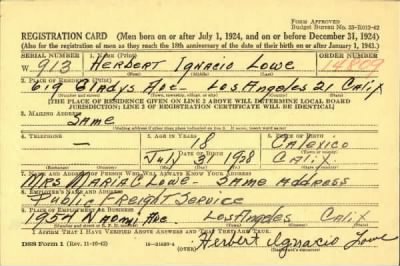 Form Approved
Budget Bureau No. 33-R012-42
REGISTRATION CARD (Men born on or after July 1, 1924, and on or before December 31, 1924)
(Also for the registration of men as they reach the 18th anniversary of the date of their birth on or after January 1, 1943.)
SERIAL NUMBER 1. NAME (Print) ORDER NUMBER
W 913 HERBERT IGNACIO LOWE
(First) (Middle) (Last)
2. PLACE OF RESIDENCE (Print)
619 GLADYS AVE - LOS ANGELES 21 CALIF
(Number and street) (Town, township, village, or city) (County) (State)
[THE PLACE OF RESIDENCE GIVEN ON LINE 2 ABOVE WILL DETERMINE LOCAL BOARD
JURISDICTION; LINE 2 OF REGISTRATION CERTIFICATE WILL BE IDENTICAL]
3. MAILING ADDRESS
SAME
4. TELEPHONE 5. AGE IN YEARS 6. PLACE OF BIRTH
— 18 CALEXICO
DATE OF BIRTH
JULY 31 CALIF.
7. NAME AND ADDRESS OF PERSON WHO WILL ALWAYS KNOW YOUR ADDRESS
MRS MARIA C LOWE - SAME ADDRESS
8. EMPLOYER'S NAME AND ADDRESS
PUBLIC FREIGHT SERVICE
9. PLACE OF EMPLOYMENT OR BUSINESS
1954 NAOMI AVE. LOS ANGELES CALIF
I AFFIRM THAT I HAVE VERIFIED ABOVE ANSWERS AND THAT THEY ARE TRUE.
DSS Form 1 (Rev. 11-16-42) (OVER) Herbert Ignacio Lowe